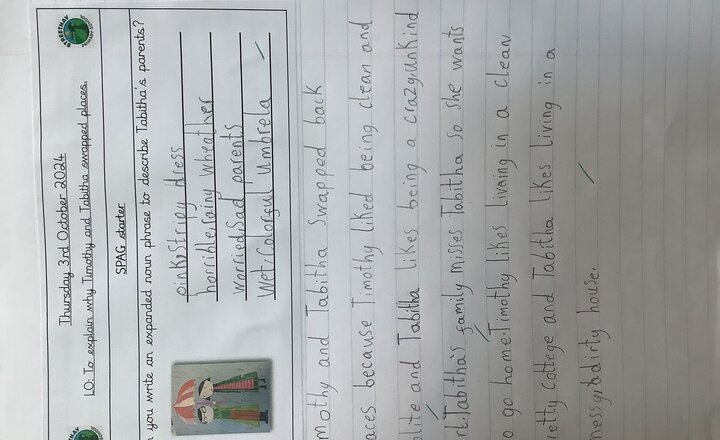 Thursday 3rd October 2024
LO: To explain why Timothy and Tabitha swapped places.
SPAG starter
you write an expanded noun phrase to describe Tabitha's parents?
oink, stripy dress
horrible, rainy wheather
worried, sad parents
Wet, Colorful umbrela
mothy and Tabitha Swapped back
aces because Timothy liked being clean and
olite and Tabitha likes being a crazy, unkind
rl. Tabitha's family misses Tabitha so she wants
o go home. Timothy likes livaing in a clean
retty cottege and Tabitha likes living in a
messy, dirty house.